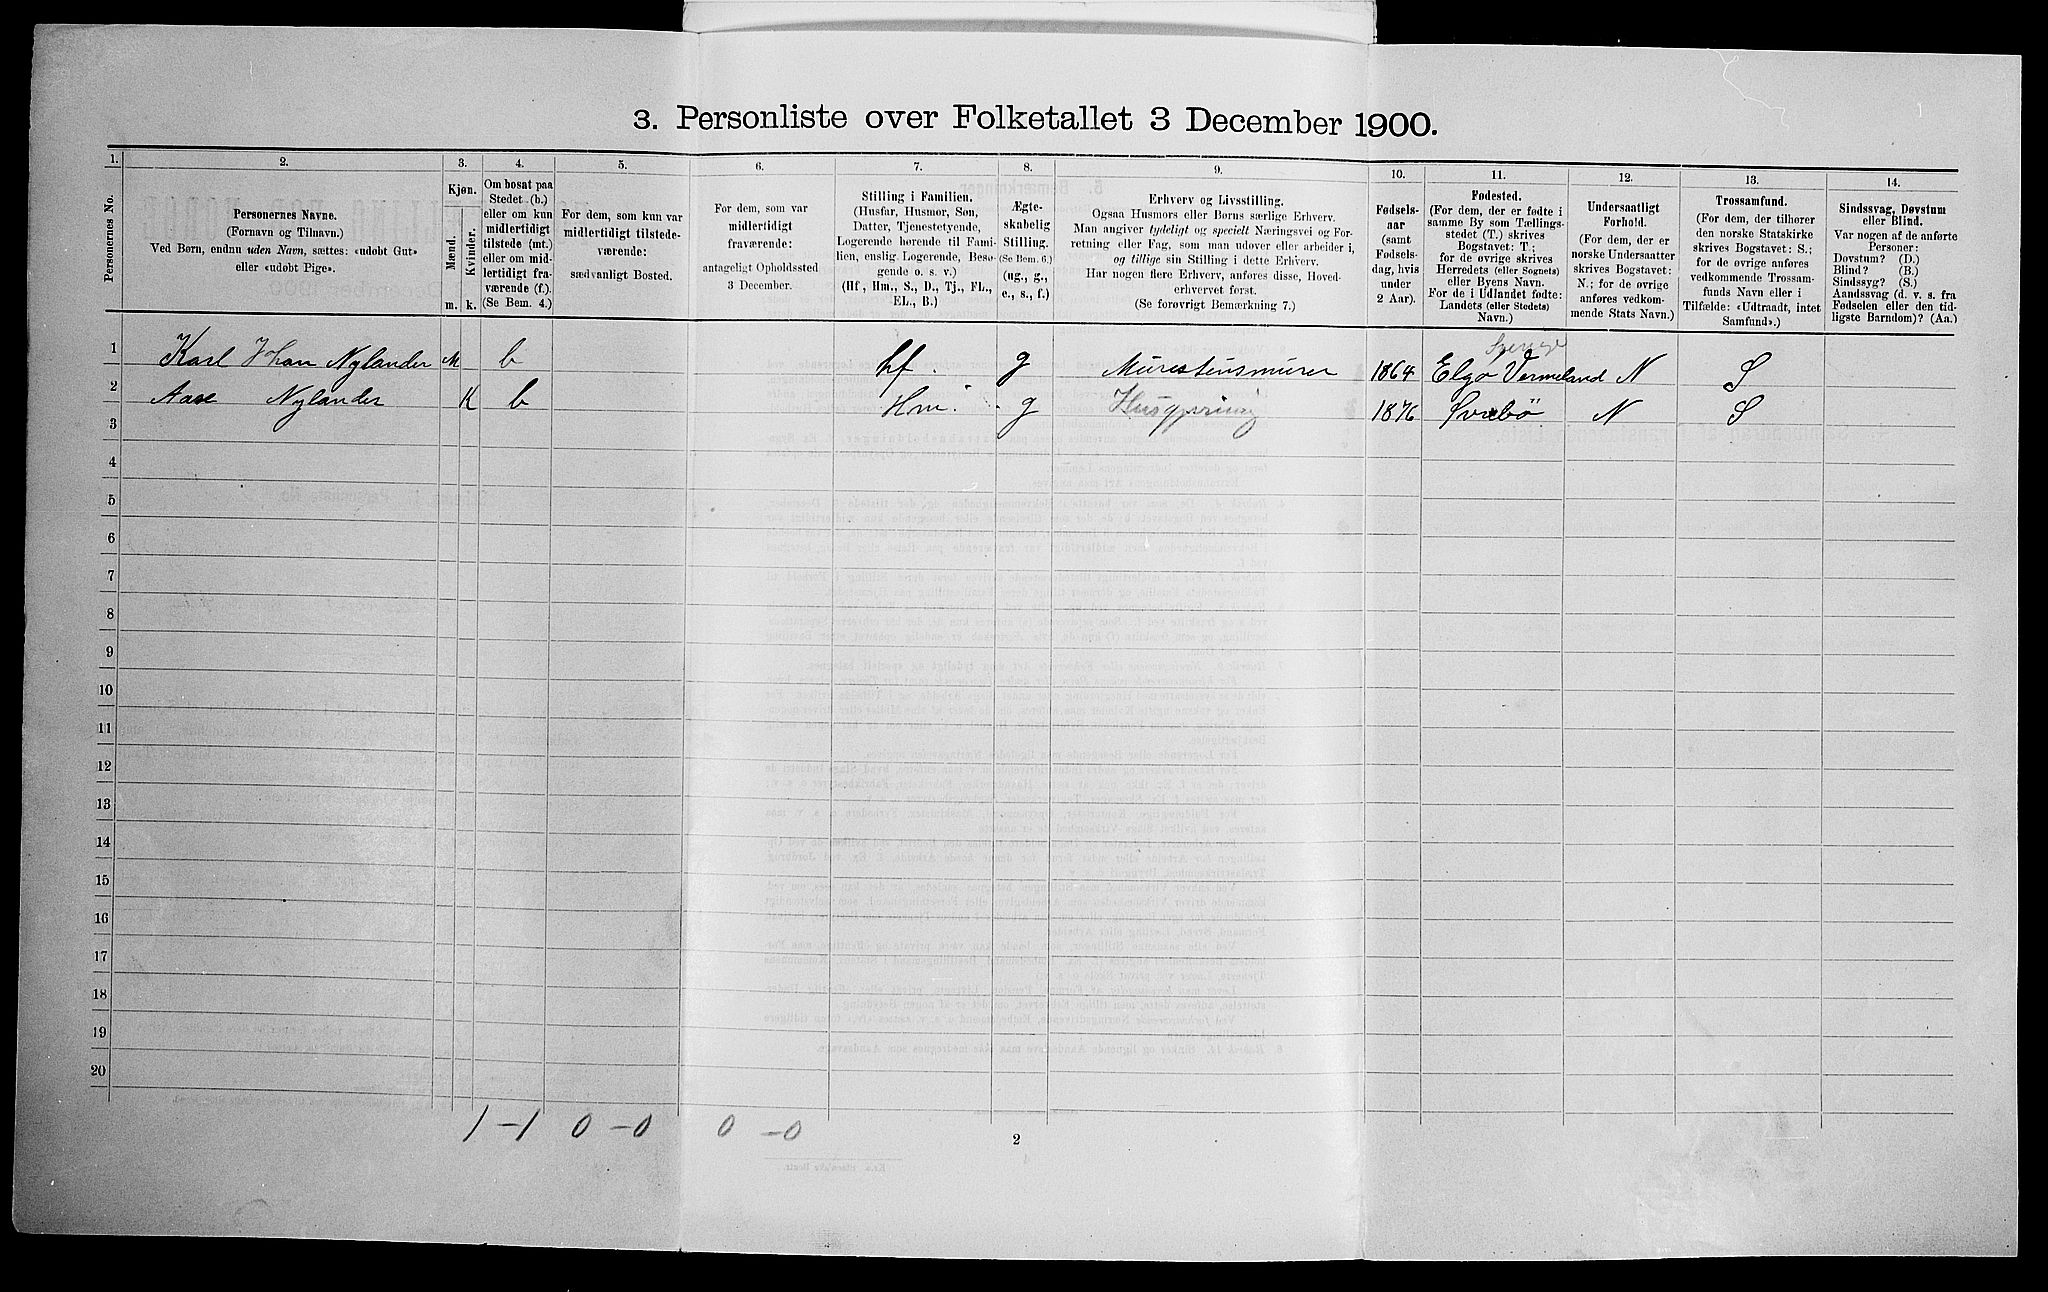 3. Personliste over Folketallet 3 December 1900.
1. 2. 3. 4. 5. 6. 7. 8. 9. 10. 11. 12. 13. 14.
Personernes No.
Personernes Navne.
(Fornavn og Tilnavn.)
Ved Børn, endnu uden Navn, sættes: «udøbt Gut»
eller «udøbt Pige».
Kjøn.
Mænd.
Kvinder.
m. k.
Om bosat paa
Stedet (b.)
eller om kun
midlertidigt
tilstede (mt.)
eller om mid-
lertidigt fra-
værende (f.).
(Se Bem. 4.)
For dem, som kun var
midlertidigt tilstede-
værende:
sædvanligt Bosted.
For dem, som var
midlertidigt
fraværende:
antageligt Opholdssted
3 December.
Stilling i Familien.
(Husfar, Husmor, Søn,
Datter, Tjenestetyende,
Logerende hørende til Fami-
lien, enslig Logerende, Besø-
gende o. s. v.)
(Hf, Hm., S., D., Tj., FL.,
EL., B.)
Ægte-
skabelig
Stilling.
(Se Bem. 6.)
(ug., g.,
e., s., f.)
Erhverv og Livsstilling.
Ogsaa Husmors eller Børns særlige Erhverv.
Man angiver tydeligt og specielt Næringsvei og For-
retning eller Fag, som man udover eller arbeider i,
og tillige sin Stilling i dette Erhverv.
Har nogen flere Erhverv, anføres disse, Hoved-
erhvervet først.
(Se forøvrigt Bemærkning 7.)
Fødsels-
aar
(samt
Fødsels-
dag, hvis
under
2 Aar).
Fødested.
(For dem, der er fødte i
samme By som Tællings-
stedet (T.) skrives
Bogstavet: T.;
for de øvrige skrives
Herredets (eller Sognets)
eller Byens Navn.
For de i Udlandet fødte:
Landets (eller Stedets)
Navn.)
Undersaatligt
Forhold.
(For dem, der er
norske Undersaatter
skrives Bogstavet:
N.; for de øvrige
anføres vedkom-
mende Stats Navn.)
Trossamfund.
(For dem, der tilhører
den norske Statskirke
skrives Bogstavet: S.;
for de øvrige anføres
vedkommende Trossam-
funds Navn eller i
Tilfælde: «Udtraadt, intet
Samfund».)
Sindssvag, Døvstum
eller Blind.
Var nogen af de anførte
Personer:
Døvstum? (D.)
Blind? (B.)
Sindssyg? (S.)
Aandssvag (d. v. s. fra
Fødselen eller den tid-
ligste Barndom)? (Aa.)
Sverige
1 Karl Johan Nylander M b hf. g Murestensmurer 1864 Elgo Vermeland N S
2 Aase Nylander K b Hm. g Husgjerning 1876 Øvrebö N S
3
4
5
6
7
8
9
10
11
12
13
14
15
16
17
18
19
20
1 - 1 0 - 0 0 - 0
2